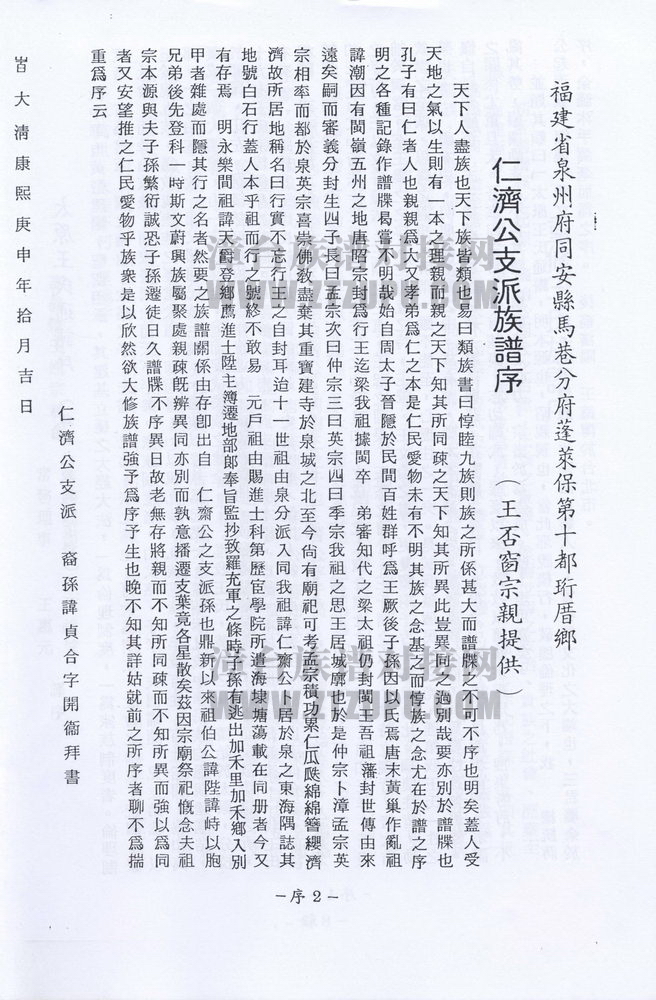 福建省泉州府同安縣馬巷分府蓬萊保第十都珩厝鄉
仁濟公支派族譜序
（王否窗宗親提供）
天下人盡族也天下族皆類也易曰類族書曰惇睦九族則族之所係甚大而譜牒之不可不序也明矣蓋人受
天地之氣以生則有一本之理親而親之天下知其所同疎之天下知其所異此豈異同之過別哉要亦別於譜牒也
孔子有曰仁者人也親親爲大又孝弟爲仁之本是仁民愛物未有不明其族之念基之而惇族之念尤在於譜之序
明之各種記錄作譜牒曷嘗不明哉始自周太子晉隱於民間百姓群呼爲王厥後子孫因以氏焉唐末黃巢作亂祖
諱潮因有閩嶺五州之地唐昭宗封爲行王迄梁我祖據閩卒　弟審知代之梁太祖仍封閩王吾祖藩封世傳由來
遠矣嗣而審義分封生四子長曰孟宗次曰仲宗三曰英宗四曰季宗我祖之思王居城廓也於是仲宗卜漳孟宗英
宗相率而都於泉英宗喜崇佛敎盡棄其重寶建寺於泉城之北至今尙有廟祀可考孟宗積功累仁瓜瓞綿綿簪纓濟
濟故所居地稱名曰行實不忘行王之自封耳迨十一世祖由泉分派入同我祖諱仁齋公卜居於泉之東海隅誌其
地號白石行蓋人本乎祖而行之號終不敢易　元戶祖由賜進士科第歷宦學院所遺海埭塘蕩載在同册者今又
有存焉　明永樂間祖諱天爵登鄉薦進士陞主簿遷地部郎奉旨監抄致羅充軍之條時子孫有逃出加禾里加禾鄉入別
甲者雜處而隱其行之名者然要之族譜關係由存卽出自　仁齋公之支派孫也鼎新以來祖伯公諱陛諱峙以胞
兄弟後先登科一時斯文蔚興族屬聚處親疎旣辨異同亦別而孰意播遷支葉竟各星散矣玆因宗廟祭祀慨念夫祖
宗本源與夫子孫繁衍誠恐子孫遷徙日久譜牒不序異日故老無存將親而不知所同疎而不知所異而強以爲同
者又安望推之仁民愛物乎族衆是以欣然欲大修族譜強予爲序予生也晚不知其詳姑就前之所序者聊不爲揣
重爲序云
旹大淸康熙庚申年拾月吉日
仁濟公支派　裔孫諱貞合字開衙拜書
–序 2 –